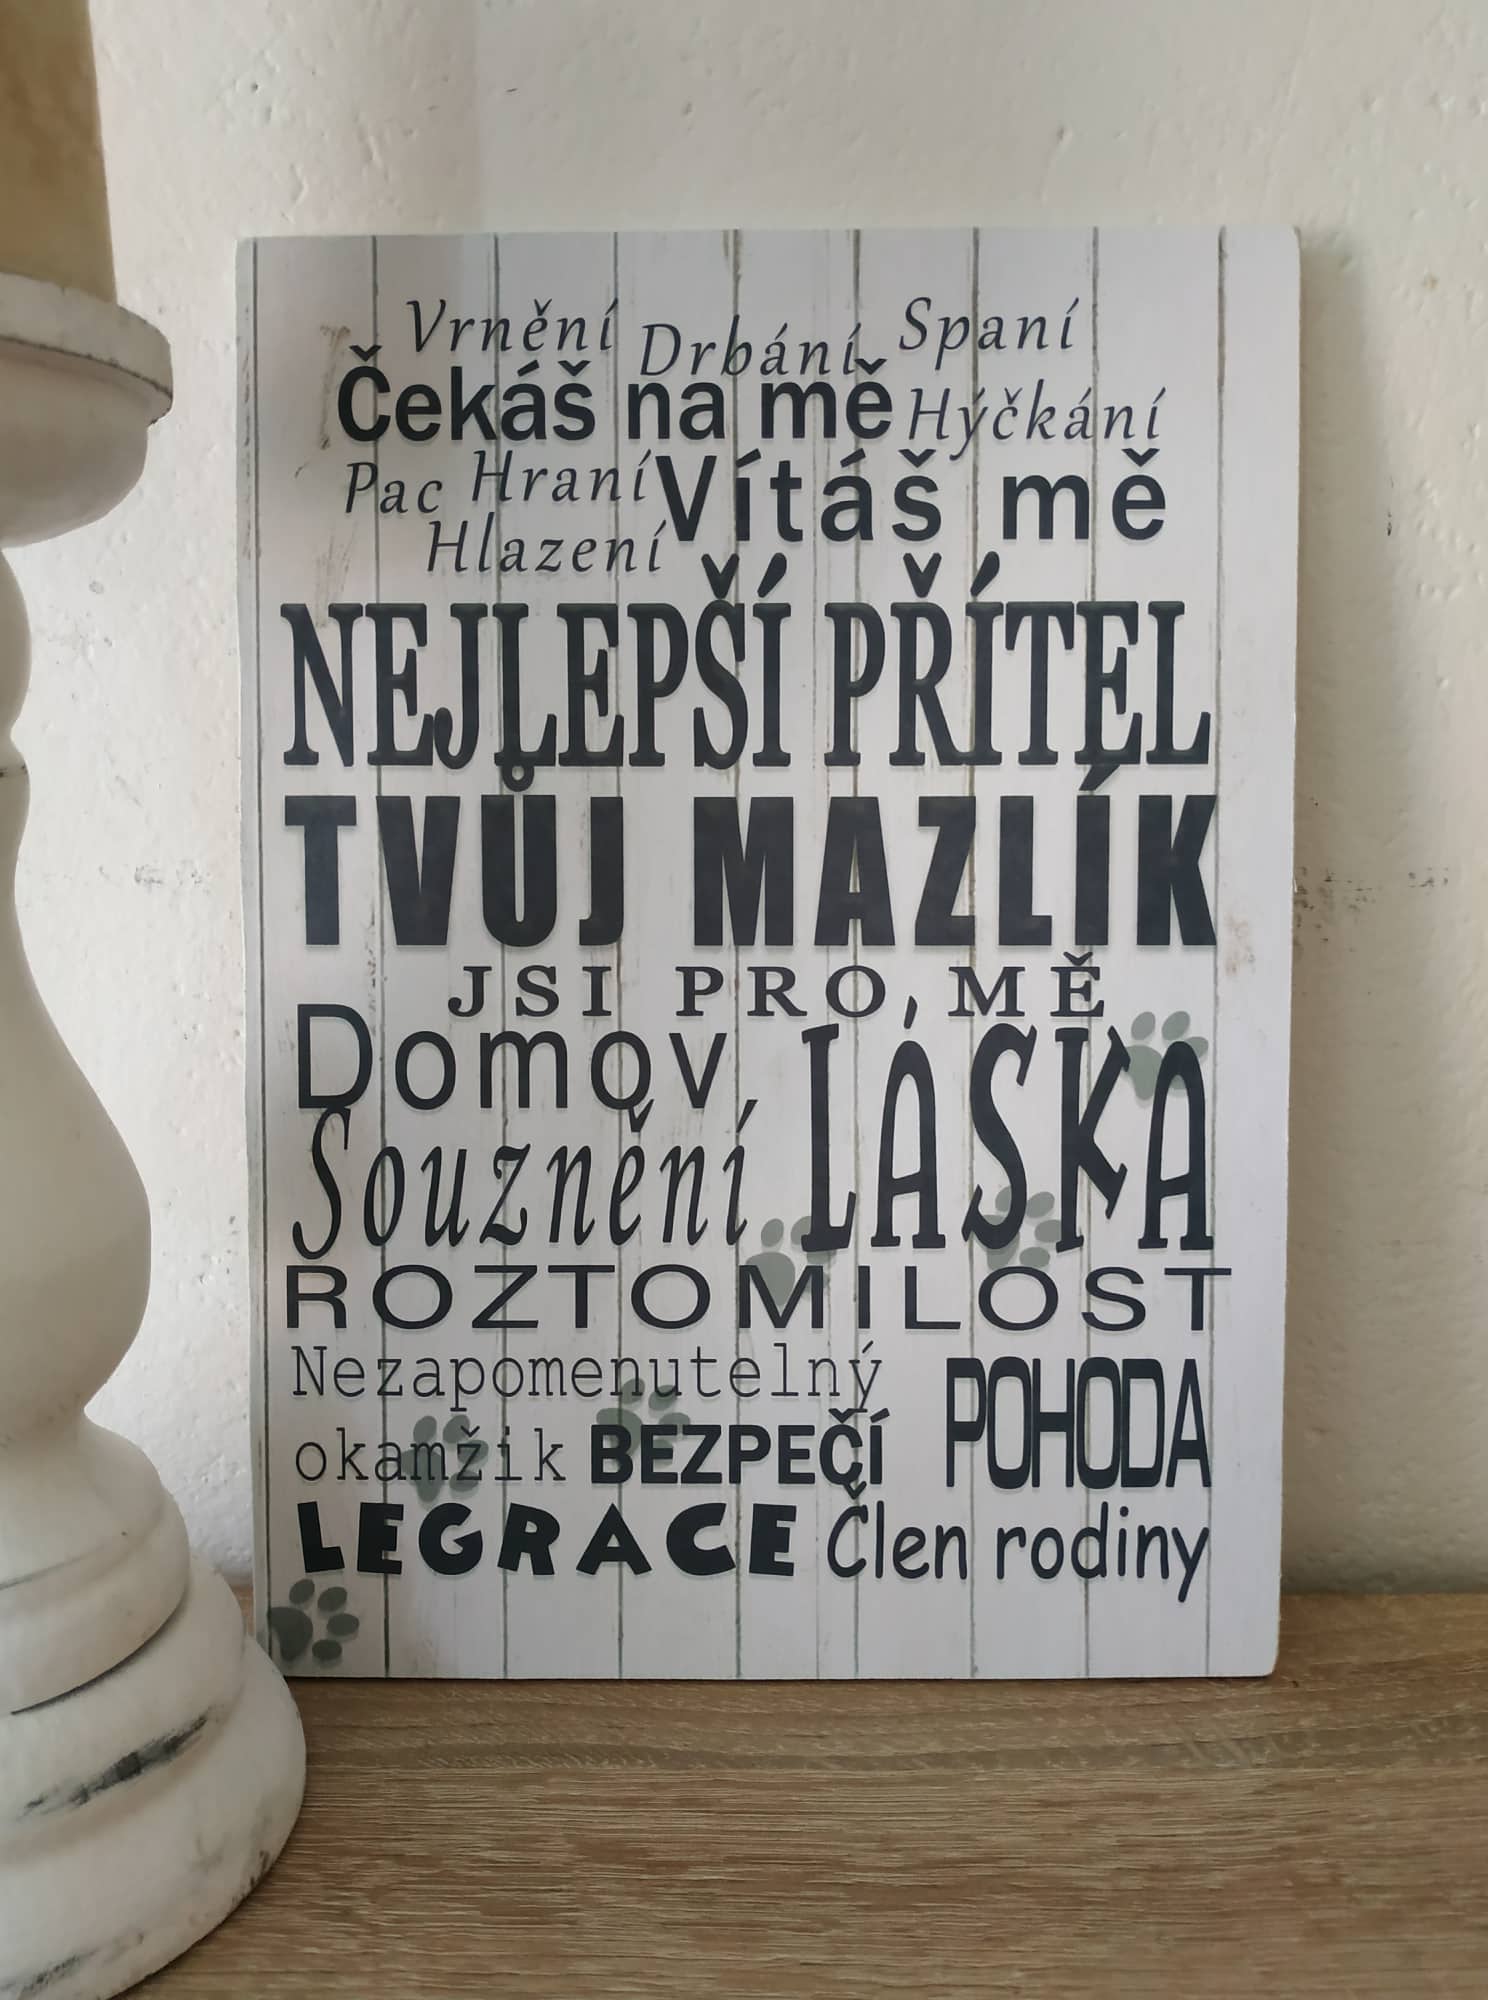 Vrnění Drbání Spaní
Čekáš na mě Hýčkání
Pac Hraní Vítáš mě
Hlazení
NEJLEPŠÍ PŘÍTEL
TVŮJ MAZLÍK
JSI PRO MĚ
Domov LÁSKA
Souznění
ROZTOMILOST
Nezapomenutelný POHODA
okamžik BEZPEČÍ
LEGRACE Člen rodiny